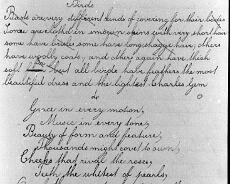 Birds
Beasts are very different kinds of covering for their bodies
Some are clothed in smooth with very short hair
some have bristles some have long shaggy hair, others
have woolly coats, and others again have thick
soft But all birds have feathers the most
beautiful dress and the lightest Charles Gem
Grace in every motion,
Music in every tone,
Beauty of form and feature,
Thousands might covet to own,
Cheeks that rival the roses,
Teeth the whitest of pearls,